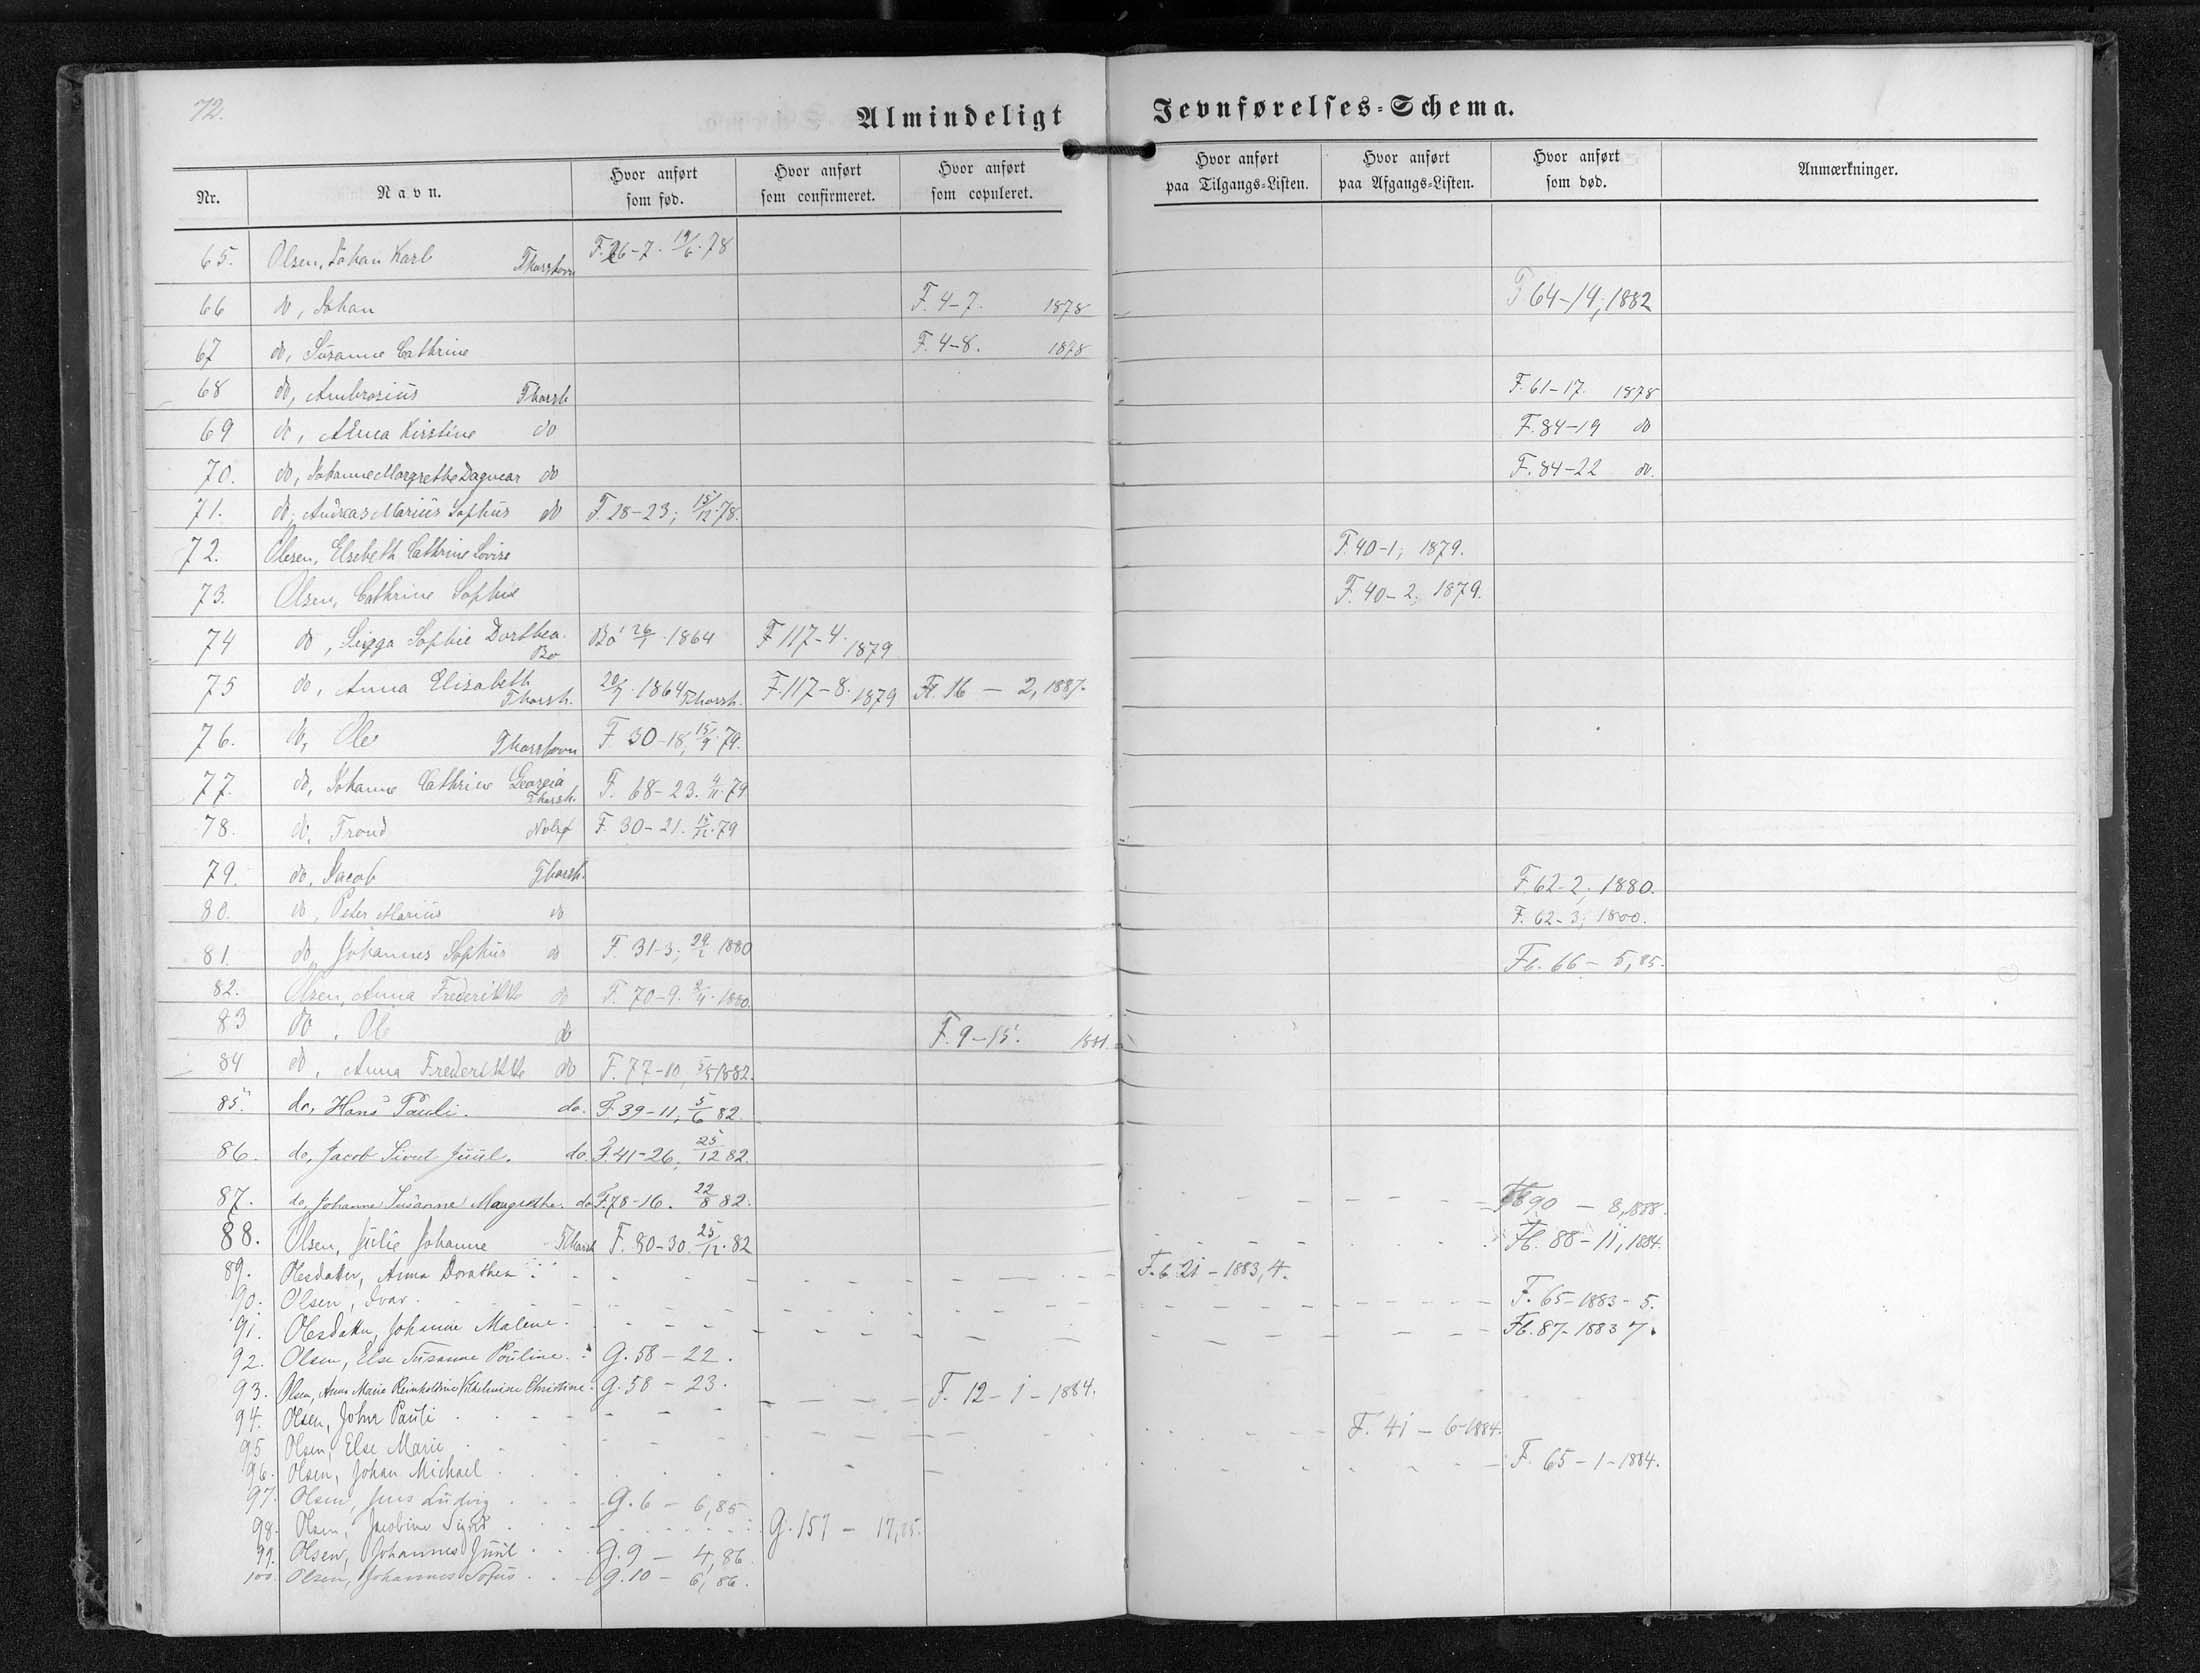 72.
Almindeligt Jevnførelses-Schema.
Nr. Navn. Hvor anført som fød. Hvor anført som confirmeret. Hvor anført som copuleret. Hvor anført paa Tilgangs-Listen. Hvor anført paa Afgangs-Listen. Hvor anført som død. Anmærkninger.
65. Olsen, Johan Karl Thorshavn F. 26-7. 19/6. 78
66 do, Johan F. 4-7. 1878 F 64-14, 1882
67 do, Susanne Cathrine F. 4-8. 1878
68 do, Ambrosius Thorsh F. 61-17. 1878
69 do, Anna Kirstine do F. 84-19 do
70. do, Johanne Margrethe Dagmar do F. 84-22 do.
71. do, Andreas Marius Sophus do F. 28-23; 15/12. 78.
72. Olesen, Elsebeth Cathrine Lovise F. 40-1; 1879.
73. Olsen, Cathrine Sophie F. 40-2; 1879.
74 do, Sigga Sophie Dorthea. Bø Bø 26/1 1864 F 117-4. 1879
75 do, Anna Elisabeth Thorsh. 20/7. 1864 Thorsh. F. 117-8. 1879 F. 16 - 2, 1887.
76. do, Ole Thorshavn F. 30-18, 15/9. 79.
77. do, Johanne Cathrine Georgia Thorsh. F. 68-23. 4/11. 79
78. do, Trond Nolsø F. 30-21. 15/12. 79
79. do, Jacob Thorsh. F. 62-2; 1880.
80. do, Peter Marius do F. 62-3; 1880.
81. do, Johannes Sophus do F. 31-3; 29/1 1880 Fb. 66 - 5, 85.
82. Olsen, Anna Frederikke do F. 70-9. 2/4. 1880.
83 do, Ole do F. 9-15. 1881.
84 do, Anna Frederikke do F. 77-10, 5/5 1882.
85. do, Hans Pauli. do. F. 39-11; 5/6 82.
86. do, Jacob Sivert Juul. do. F. 41-26; 25/12 82.
87. do, Johanne Susanne Margrethe. do F. 78-16. 22/8 82. Fb 90 - 8, 1888.
88. Olsen, Julie Johanne Thorsh F. 80-30. 25/12. 82 Fb. 88-11, 1884.
89. Olesdatter, Anna Dorothea F. b. 21 - 1883, 4.
90. Olsen, Ivar. F. 65-1883-5.
91. Olesdatter, Johanne Malene. Fb. 87-1883 7.
92. Olsen, Else Susanne Pouline. G. 58 - 22.
93. Olsen, Anna Marie Reinholdine Vilhelmine Christine. G. 58 - 23.
94. Olsen, John Pauli F. 12-1-1884.
95 Olsen, Else Marie F. 41 - 6-1884.
96. Olsen, Johan Michael F. 65-1-1884.
97. Olsen, Jens Ludvig G. 6 - 6, 85
98. Olsen, Jacobine Sigrid G. 157 - 17, 85.
99. Olsen, Johannes Juul G. 9 - 4, 86
100. Olsen, Johannes Sofus G. 10 - 6, 86.